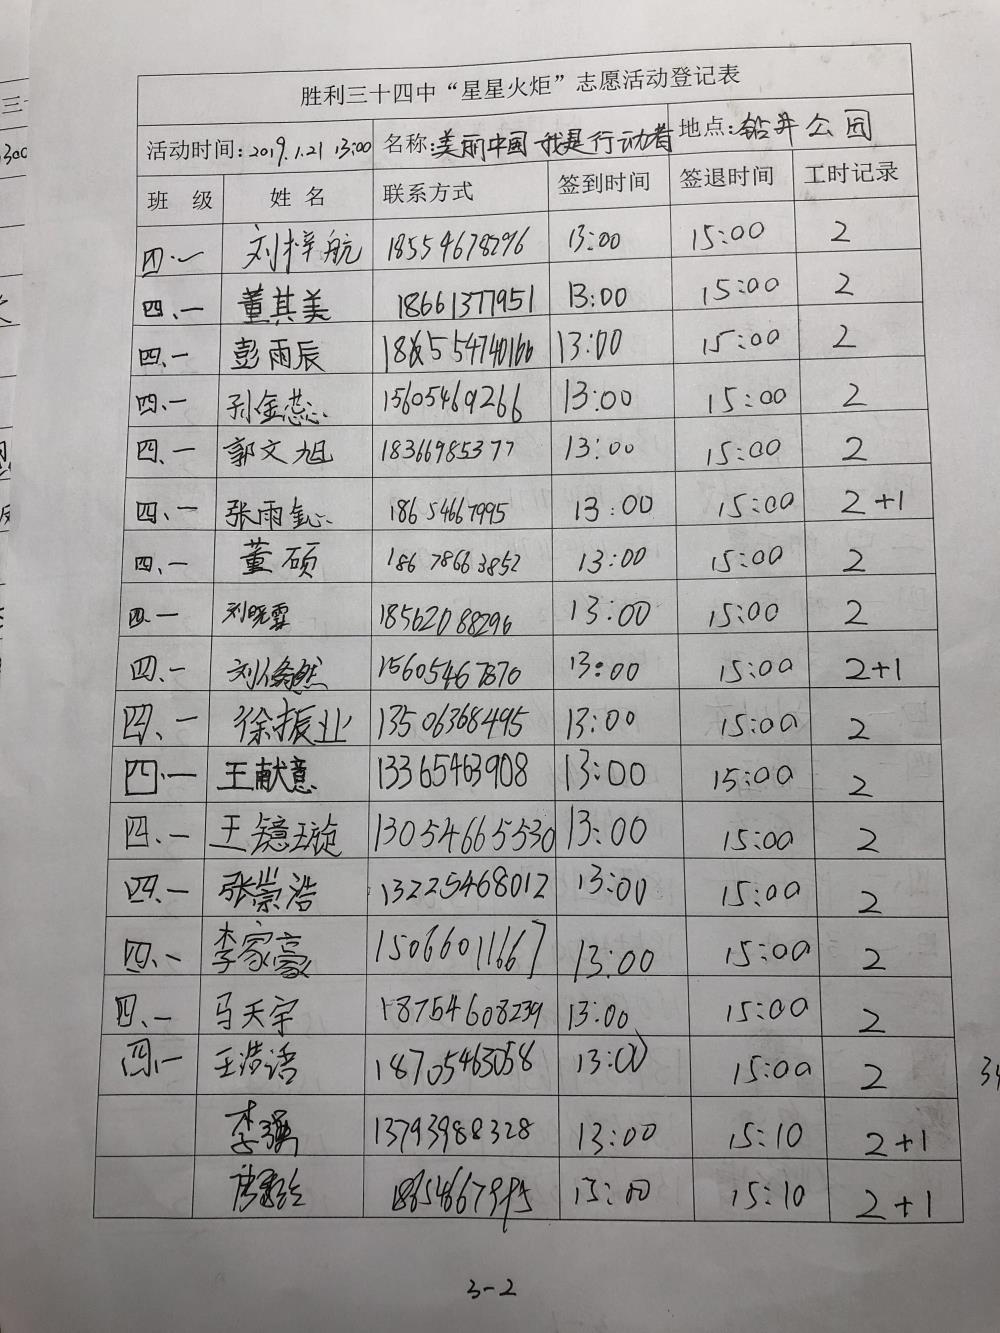 胜利三十四中“星星火炬”志愿活动登记表
活动时间:2019.1.21 13:00 名称:美丽中国 我是行动者 地点:钻井公园
班 级 姓 名 联系方式 签到时间 签退时间 工时记录
四.一 刘梓航 18554678296 13:00 15:00 2
四.一 董其美 18661377951 13:00 15:00 2
四.一 彭雨辰 13:00 15:00 2
四.一 孙金蕊 15605469266 13:00 15:00 2
四.一 郭文旭 18366985377 13:00 15:00 2
四.一 张雨鑫 18654667995 13:00 15:00 2+1
四.一 董硕 18678663852 13:00 15:00 2
四.一 刘晓霏 18562088296 13:00 15:00 2
四.一 15605467870 13:00 15:00 2+1
四.一 徐振业 13506368495 13:00 15:00 2
四.一 王献意 13365463908 13:00 15:00 2
四.一 王镱璇 13054665530 13:00 15:00 2
四.一 张崇浩 13225468012 13:00 15:00 2
四.一 李家豪 15066011667 13:00 15:00 2
四.一 马天宇 18754608239 13:00 15:00 2
四.一 王浩语 18705463058 13:00 15:00 2
李强 13793988328 13:00 15:10 2+1
18654667995 13:00 15:10 2+1
3-2